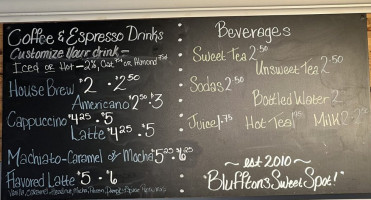 Coffee & Espresso Drinks
Customize Your drink -
Iced or Hot - 2%, Oat .75¢ or Almond .75¢
House Brew $2 • 2.50
Americano $2.50 • $3
Cappuccino $4.25 • $5
Latte $4.25 • $5
Machiato-Caramel or Mocha $5.25 • $6.25
Flavored Latte $5 • $6
Beverages
Sweet Tea 2.50
Unsweet Tea 2.50
Sodas 2.50
Bottled Water 2
Juice 1.75 Hot Tea Milk
~ est 2010 ~
"Bluffton's Sweet Spot!"